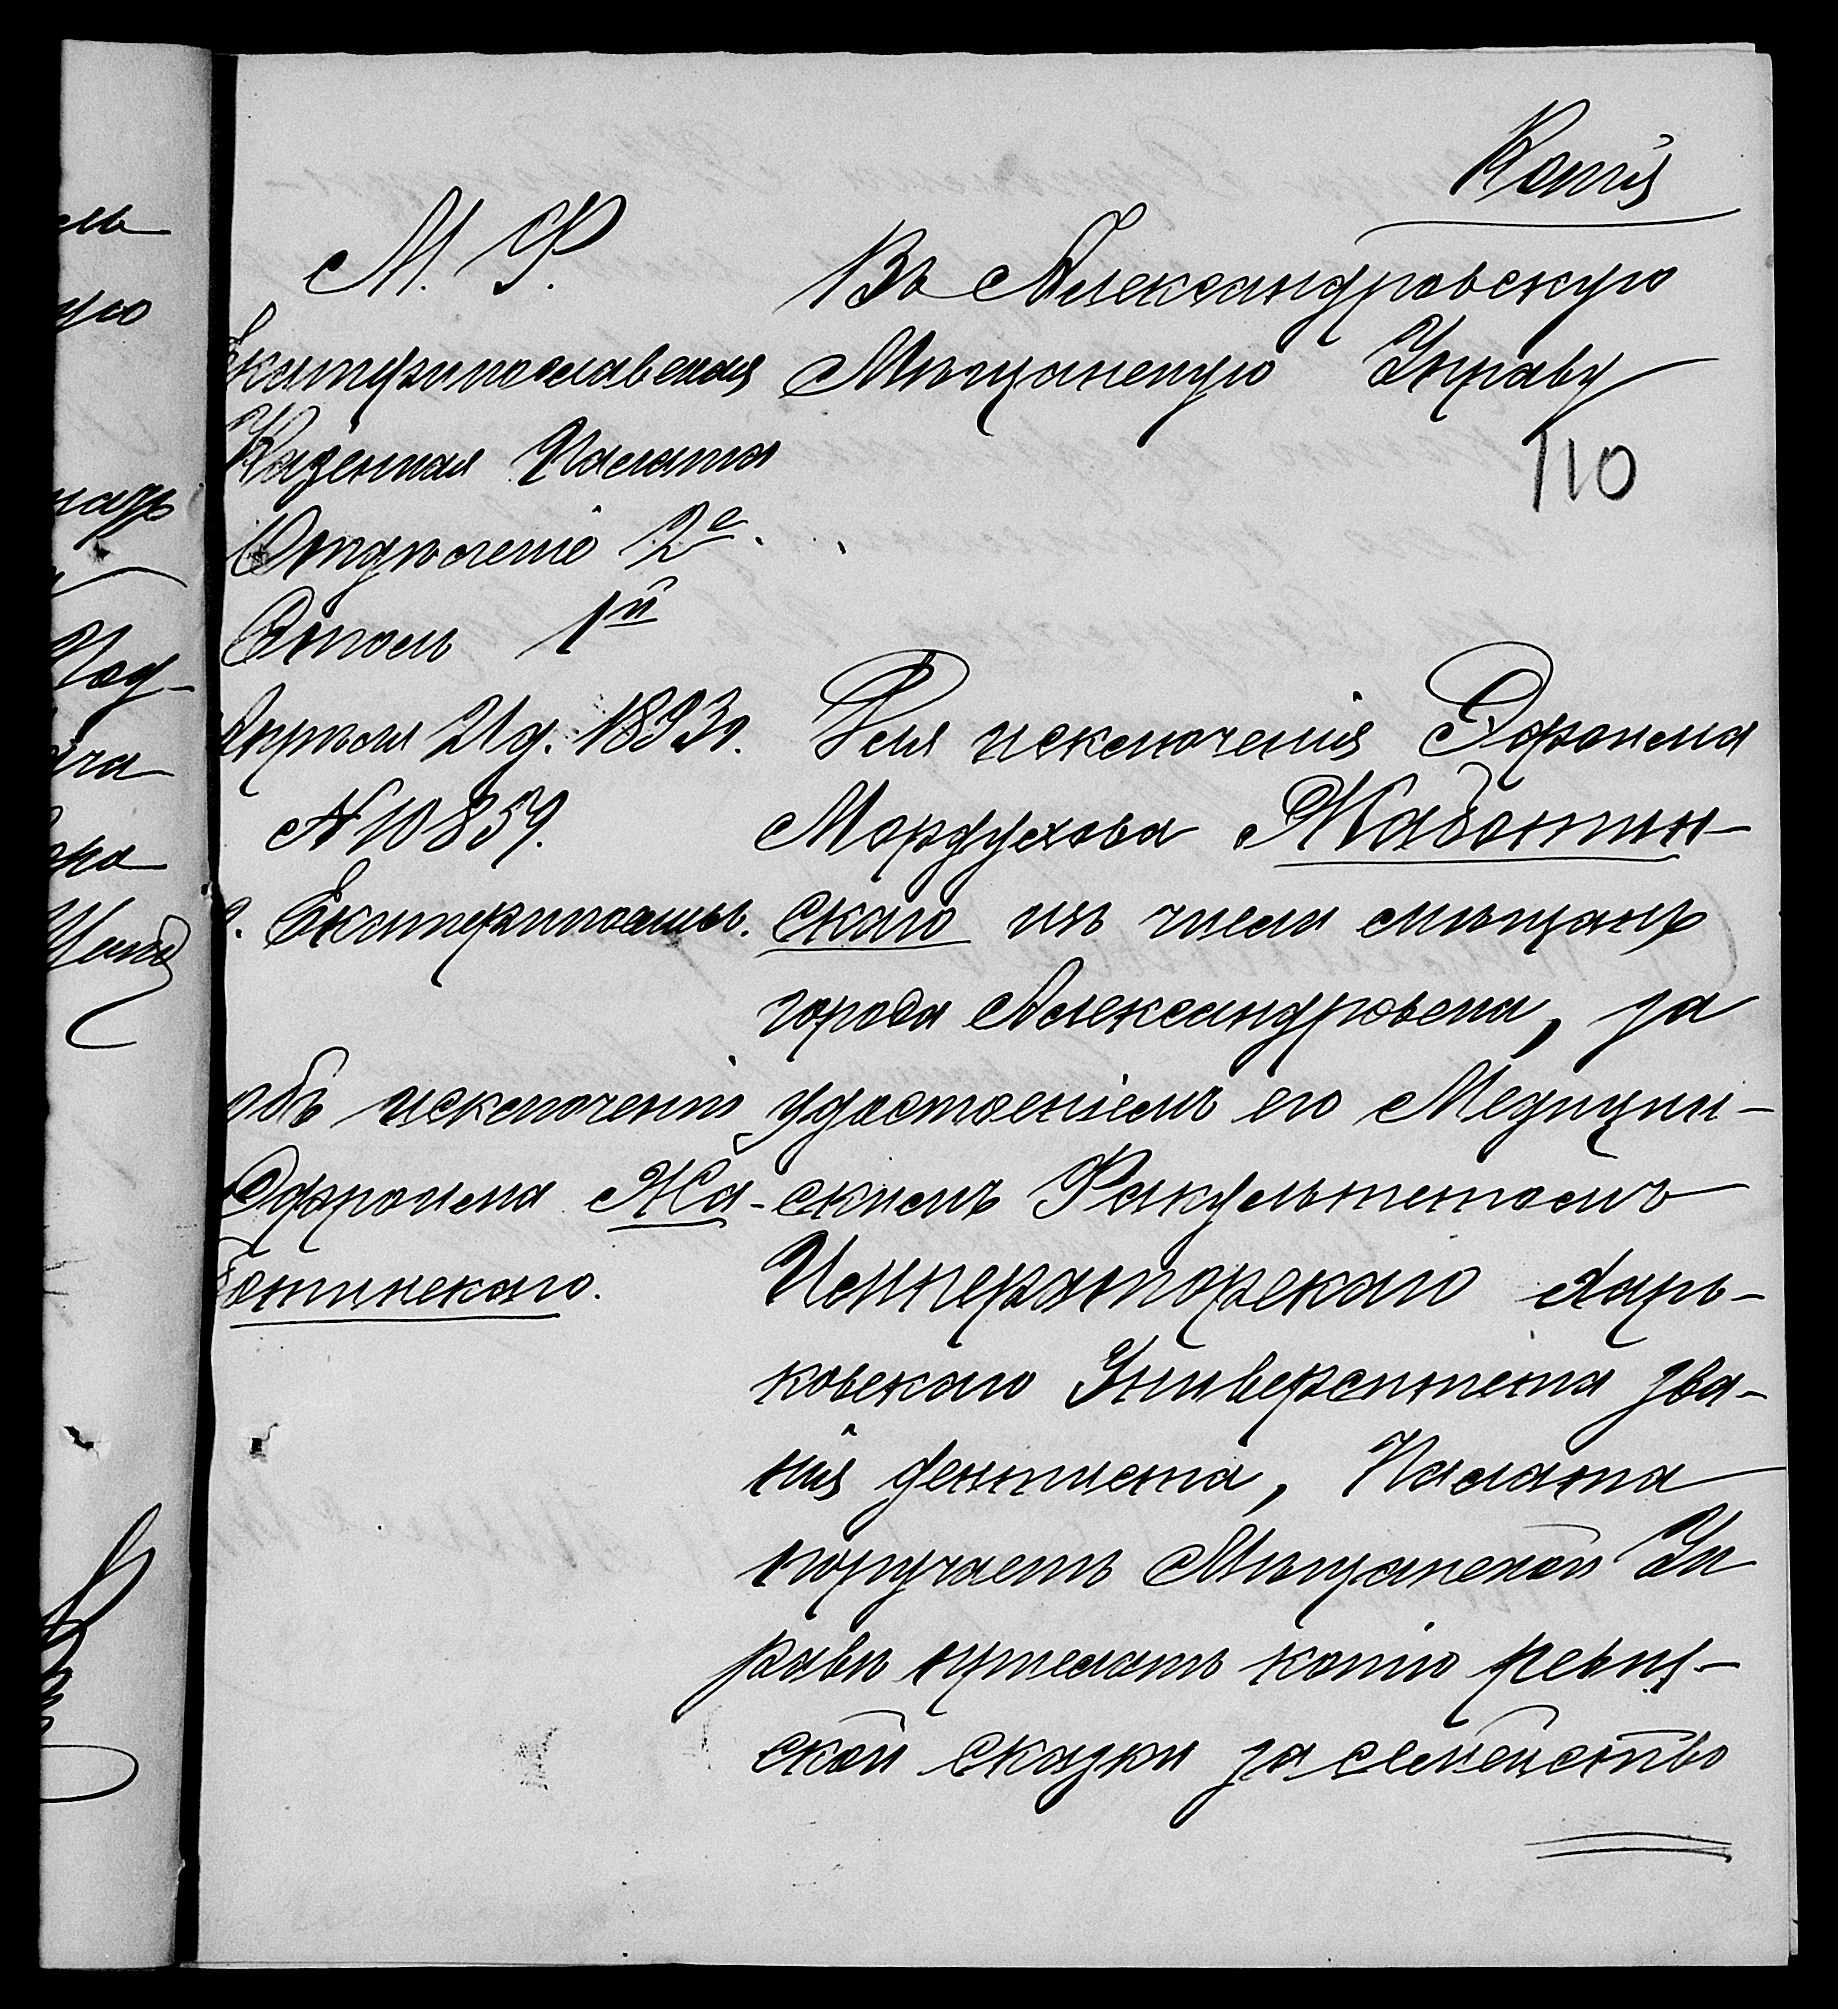 Копія
М. Ф.
Екатеринославская
Казенная Палата
Отдѣленіе 2е.
Столъ 1й
Апрѣля 21 д. 1893 г.
№ 10859.
г. Екатеринославъ.
объ исключеніи
Эфроима Жа-
ботинскаго.
Въ Александровскую
Мѣщанскую Управу
110
Для исключенія Эфроима
Мордухова Жаботин-
скаго изъ числа мѣщанъ
города Александровска, за
удостоеніемъ его Медицин-
скимъ Факультетомъ
Императорскаго Харь-
ковскаго Университета зва-
нія дантиста, Палата
поручаетъ Мѣщанской Уп
равѣ прислать копію ревиз-
ской сказки за семейство